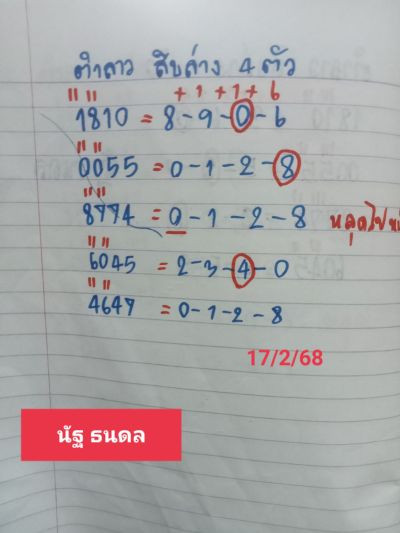 ตำลาว สิบล่าง 4 ตัว
+ 1 + 1 + 6
1810 = 8-9-0-6
0055 = 0-1-2-8
8774 = 0-1-2-8 หลุดไป
6045 = 2-3-4-0
4647 = 0-1-2-8
17/2/68
นัฐ ธนดล